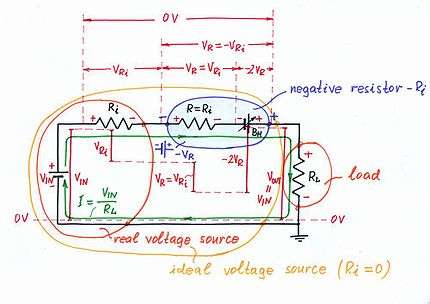 0V
VR=-VRi
VRi
VR=VRi
-2VR
Ri
R=Ri
BH
negative resistor -Ri
+
-
+
-
-
+
-VR
VRi
VR=VRi
-2VR
VIN
VIN
I = VIN
RL
VOUT
=
VIN
+
RL
-
load
0V
0V
real voltage source
ideal voltage source (Ri=0)